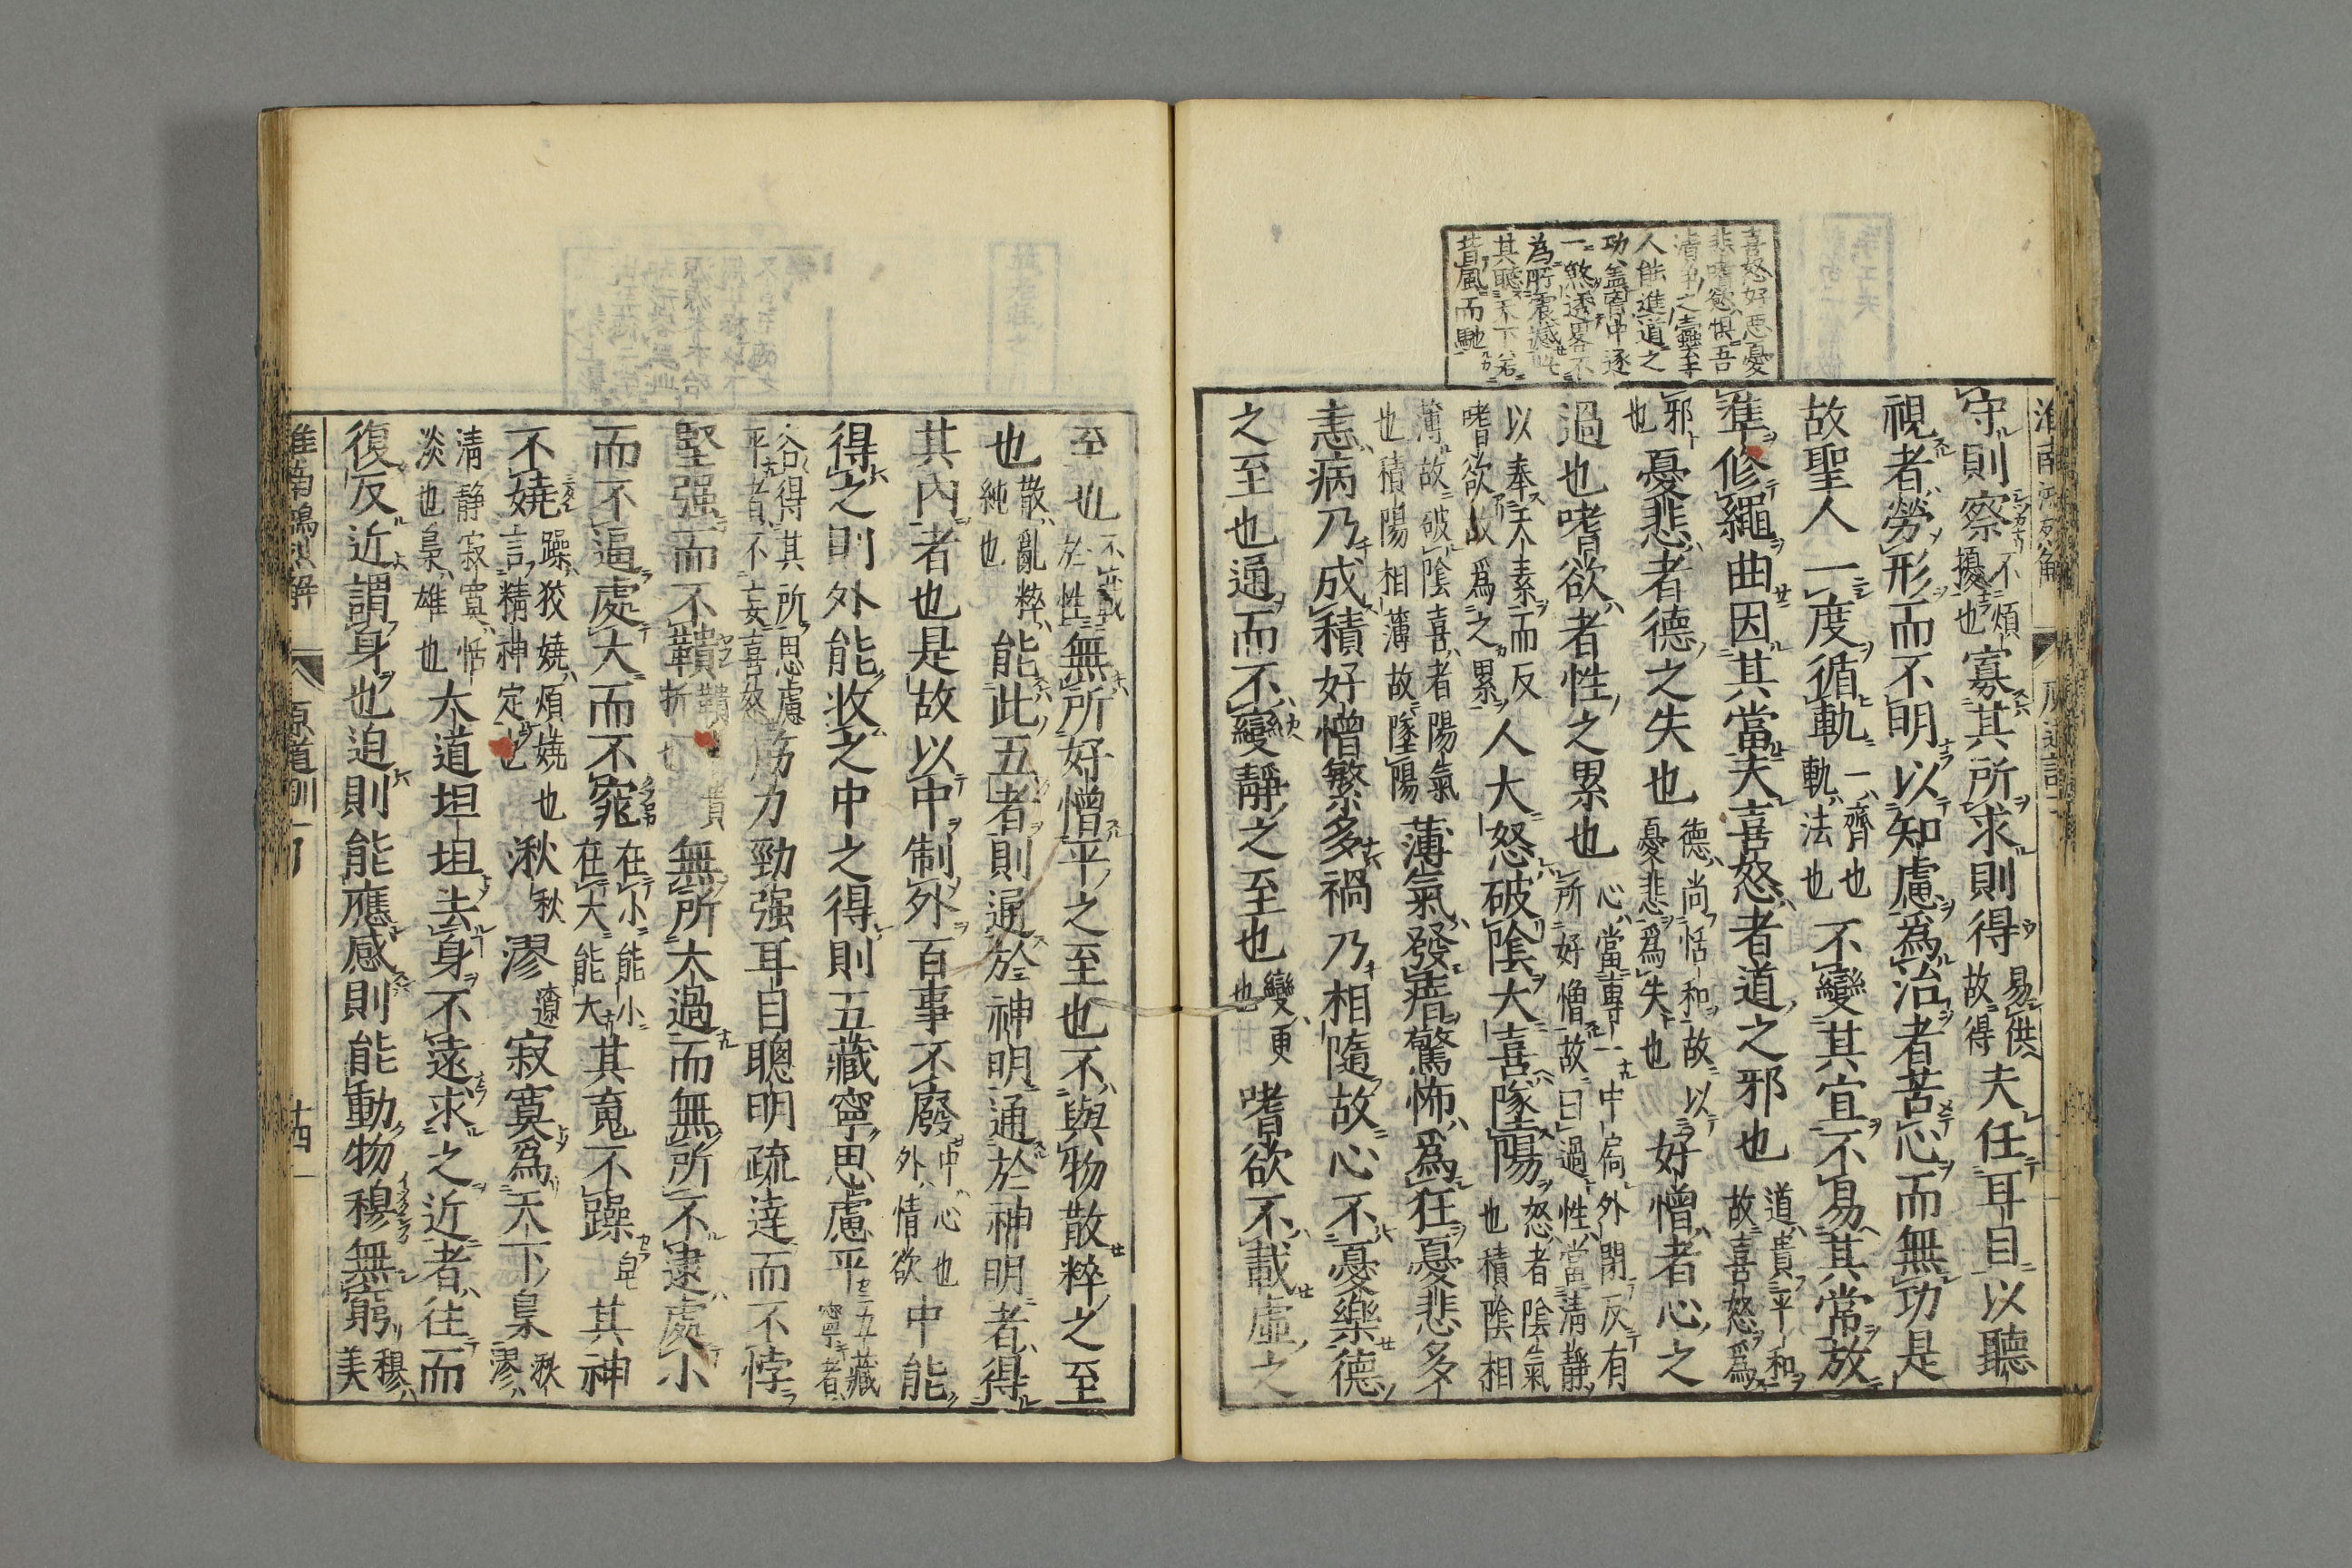 喜怒好悪憂
悲嗜慾、惧吾
清中之靈半
人能進道之
功、盖胷中逐
一煞透畧不
為所震撼
其聽天下
昔風而馳
淮南鴻烈解
原道訓
守則察不煩擾也寡其所求則得易供故得夫任耳目以聽
視者勞形而不明以知慮爲治者苦心而無功是
故聖人一度循軌一齊也軌法也不變其宜不易其常放
準修繩曲因其當夫喜怒者道之邪也道貴平和故喜怒爲
邪也憂悲者德之失也德尚恬和故以憂悲爲失也好憎者心之
過也嗜欲者性之累也心當專一中扃外閉反有所好憎故曰過性當清靜
以奉天素而反嗜欲故爲之累人大怒破陰大喜墜陽怒者陰氣也積陰相
薄故破陰喜者陽氣也積陽相薄故墜陽薄氣發瘖驚怖爲狂憂悲多
恚病乃成積好憎繁多禍乃相隨故心不憂樂德
之至也通而不變靜之至也變更也嗜欲不載虛之
至也不載於性無所好憎平之至也不與物散粹之至
也散亂粹純也能此五者則通於神明通於神明者得
其內者也是故以中制外百事不廢中心也外情欲中能
得之則外能收之中之得則五藏寧思慮平五藏寧者
各得其所思慮平者不妄喜怒筋力勁强耳目聰明疏達而不悖
堅强而不鞼鞼折也無所太過而無所不逮處小
而不逼處大而不窕在小能小在大能大其䰟不躁其神
不嬈躁狡嬈煩嬈也言精神定也湫秋漻遼寂寞爲天下梟湫漻
清靜寂寞恬淡也梟雄也大道坦坦去身不遠求之近者往而
復反近謂身也迫則能應感則能動物穆無窮穆美
淮南鴻烈解
原道訓
十四